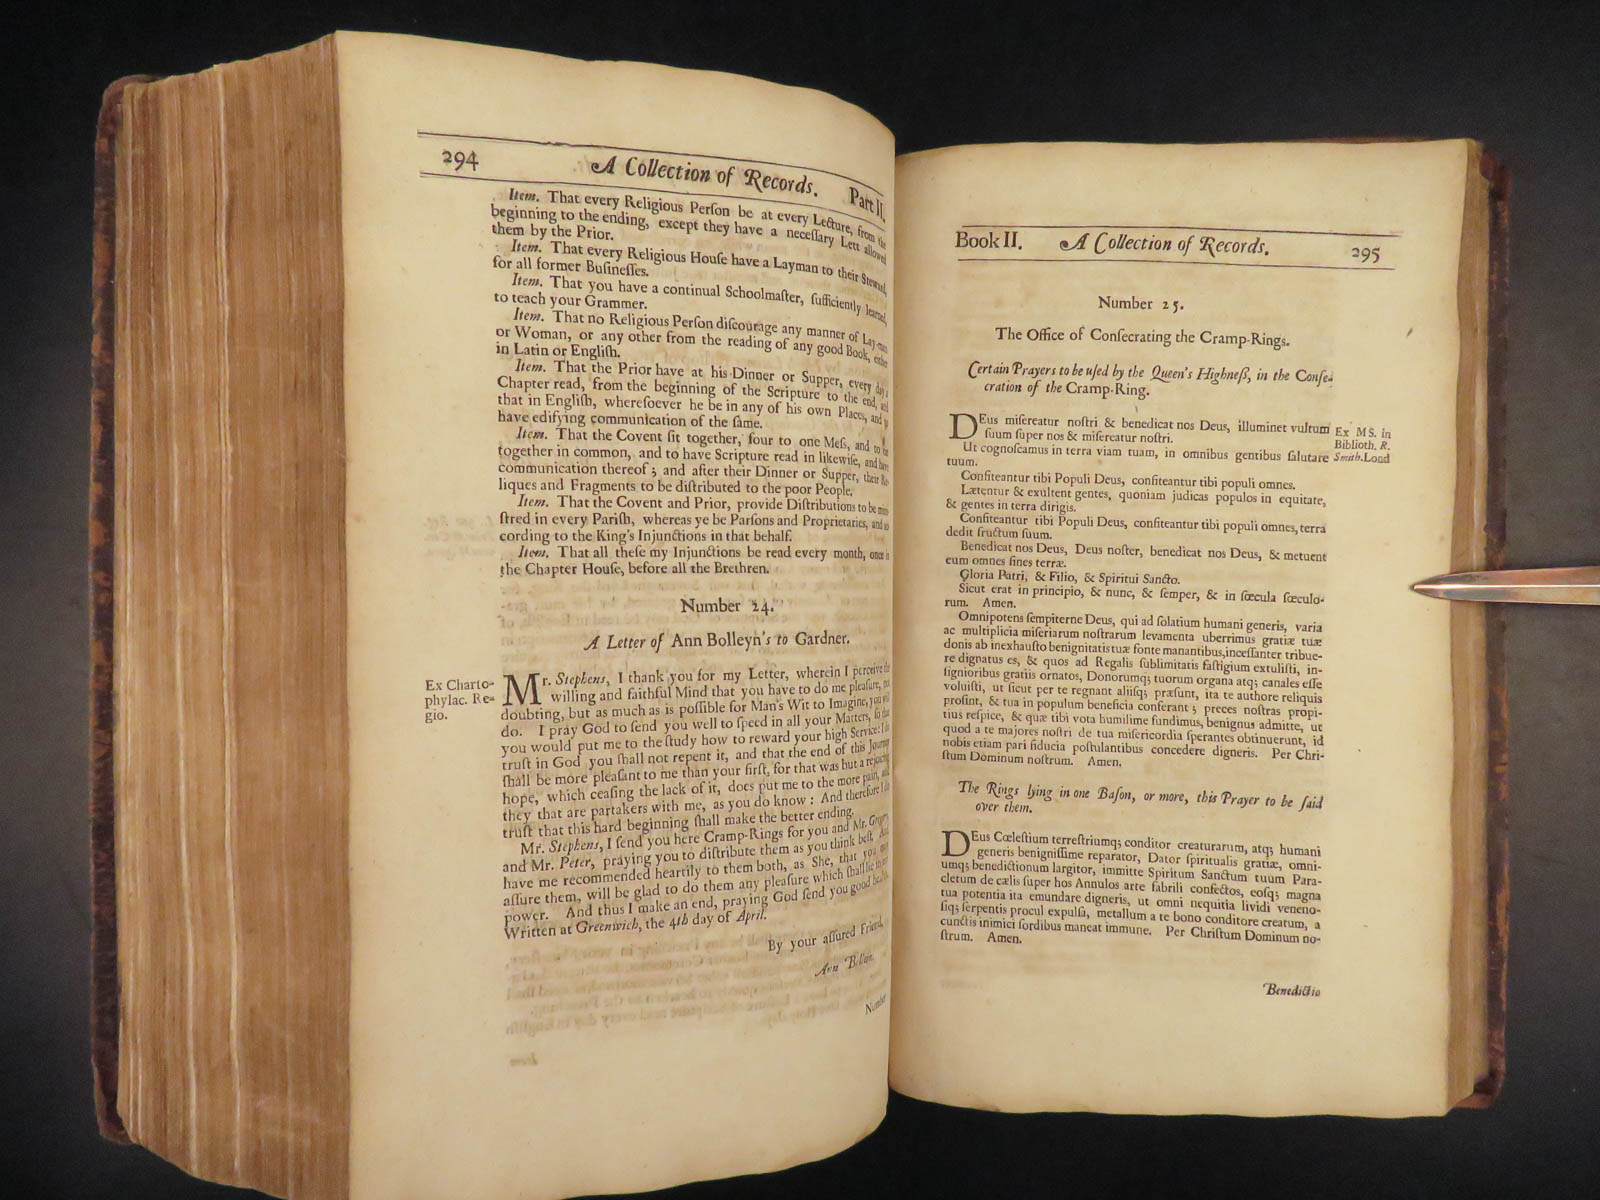 294 A Collection of Records. Part II.
Item. That every Religious Perſon be at every Lecture, from the
beginning to the ending, except they have a neceſſary Lett allowed
them by the Prior.
Item. That every Religious Houſe have a Layman to their Steward,
for all former Buſineſſes.
Item. That you have a continual Schoolmaſter, ſufficiently learned,
to teach your Grammer.
Item. That no Religious Perſon diſcourage any manner of Lay-man
or Woman, or any other from the reading of any good Book, either
in Latin or Engliſh.
Item. That the Prior have at his Dinner or Supper, every day a
Chapter read, from the beginning of the Scripture to the end, and
that in Engliſh, whereſoever he be in any of his own Places, and
have edifying communication of the ſame.
Item. That the Covent ſit together, four to one Meſs, and to
together in common, and to have Scripture read in likewiſe, and have
communication thereof; and after their Dinner or Supper, their Re-
liques and Fragments to be diſtributed to the poor People.
Item. That the Covent and Prior, provide Diſtributions to be mini-
ſtred in every Pariſh, whereas ye be Parſons and Proprietaries, and ac-
cording to the King's Injunctions in that behalf.
Item. That all theſe my Injunctions be read every month, once in
the Chapter Houſe, before all the Brethren.
Number 24.
A Letter of Ann Bolleyn's to Gardner.
Ex Charto-
phylac. Re-
gio.
Mr. Stephens, I thank you for my Letter, wherein I perceive the
willing and faithful Mind that you have to do me pleaſure, not
doubting, but as much as is poſſible for Man's Wit to Imagine, you will
do. I pray God to ſend you well to ſpeed in all your Matters, ſo that
you would put me to the ſtudy how to reward your high Service: I do
truſt in God you ſhall not repent it, and that the end of this Journey
ſhall be more pleaſant to me than your firſt, for that was but a rejoicing
hope, which ceaſing the lack of it, does put me to the more pain, and
they that are partakers with me, as you do know: And therefore I do
truſt that this hard beginning ſhall make the better ending.
Mr. Stephens, I ſend you here Cramp-Rings for you and Mr. Gregory
and Mr. Peter, praying you to diſtribute them as you think beſt. And
have me recommended heartily to them both, as She, that you may
aſſure them, will be glad to do them any pleaſure which ſhall lie in my
power. And thus I make an end, praying God ſend you good health.
Written at Greenwich, the 4th day of April.
By your aſſured Friend,
Ann Bollein.
Number
Book II. A Collection of Records. 295
Number 25.
The Office of Conſecrating the Cramp-Rings.
Certain Prayers to be uſed by the Queen's Highneſs, in the Conſe-
cration of the Cramp-Ring.
Ex MS. in
Biblioth. R.
Smith. Lond
DEus miſereatur noſtri & benedicat nos Deus, illuminet vultum
ſuum ſuper nos & miſereatur noſtri.
Ut cognoſcamus in terra viam tuam, in omnibus gentibus ſalutare
tuum.
Confiteantur tibi Populi Deus, confiteantur tibi populi omnes.
Lætentur & exultent gentes, quoniam judicas populos in equitate,
& gentes in terra dirigis.
Confiteantur tibi Populi Deus, confiteantur tibi populi omnes, terra
dedit fructum ſuum.
Benedicat nos Deus, Deus noſter, benedicat nos Deus, & metuent
eum omnes fines terræ.
Gloria Patri, & Filio, & Spiritui Sancto.
Sicut erat in principio, & nunc, & ſemper, & in ſœcula ſœculo-
rum. Amen.
Omnipotens ſempiterne Deus, qui ad ſolatium humani generis, varia
ac multiplicia miſeriarum noſtrarum levamenta uberrimus gratiæ tuæ
donis ab inexhauſto benignitatis tuæ fonte manantibus, inceſſanter tribue-
re dignatus es, & quos ad Regalis ſublimitatis faſtigium extuliſti, in-
ſignioribus gratiis ornatos, Donorumq; tuorum organa atq; canales eſſe
voluiſti, ut ſicut per te regnant aliiſq; præſunt, ita te authore reliquis
proſint, & tua in populum beneficia conferant; preces noſtras propi-
tius reſpice, & quæ tibi vota humilime fundimus, benignus admitte, ut
quod a te majores noſtri de tua miſericordia ſperantes obtinuerunt, id
nobis etiam pari fiducia poſtulantibus concedere digneris. Per Chri-
ſtum Dominum noſtrum. Amen.
The Rings lying in one Baſon, or more, this Prayer to be ſaid
over them.
DEus Cœleſtium terreſtriumq; conditor creaturarum, atq; humani
generis benigniſſime reparator, Dator ſpiritualis gratiæ, omni-
umq; benedictionum largitor, immitte Spiritum Sanctum tuum Para-
cletum de cælis ſuper hos Annulos arte fabrili confectos, eoſq; magna
tua potentia ita emundare digneris, ut omni nequitia lividi veneno-
ſiq; ſerpentis procul expulſa, metallum a te bono conditore creatum, a
cunctis inimici ſordibus maneat immune. Per Chriſtum Dominum no-
ſtrum. Amen.
Benedictio